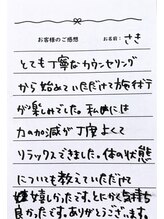 お客様のご感想
お名前：さき
とても丁寧なカウンセリング
から始めていただけて施術行
が楽しみでした。私的には
力の加減が丁度よくて
リラックスできました。体の状態
についても教えていただけて
嬉しかったです。とにかく気持ち
良かったです。ありがとうございます。